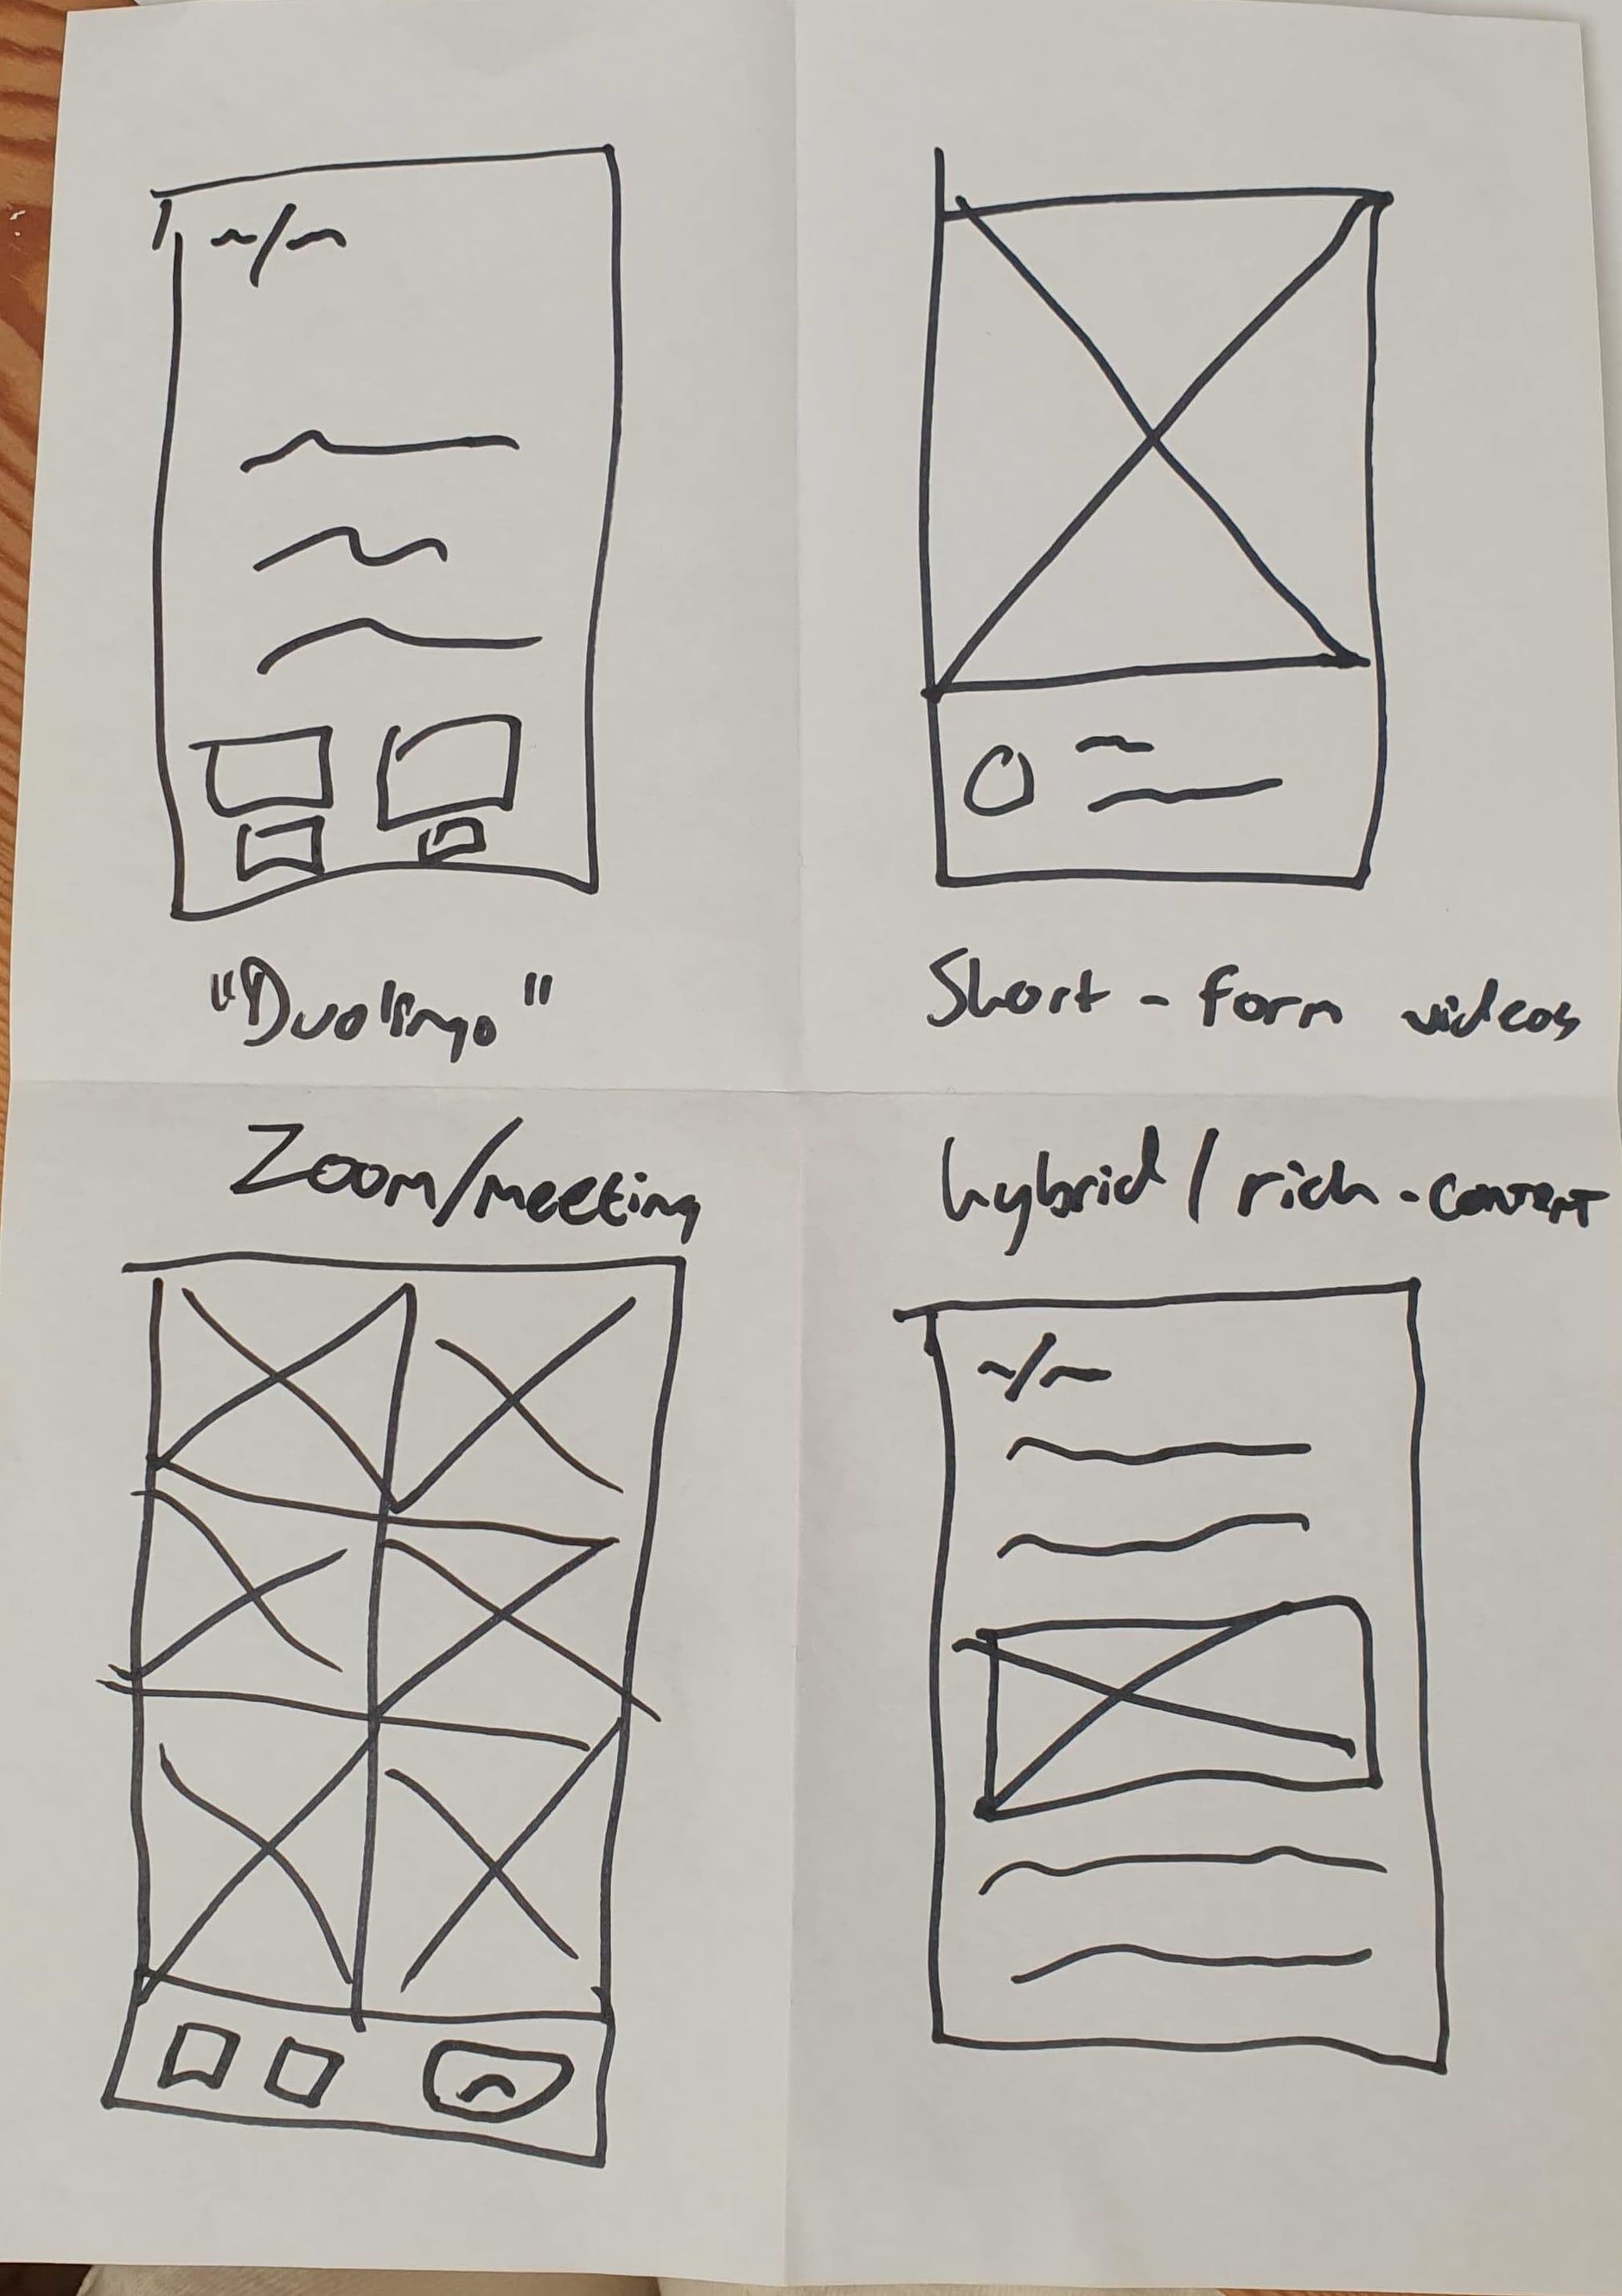 "Duolingo"
Short - form videos
Zoom/meeting
hybrid / rich - content